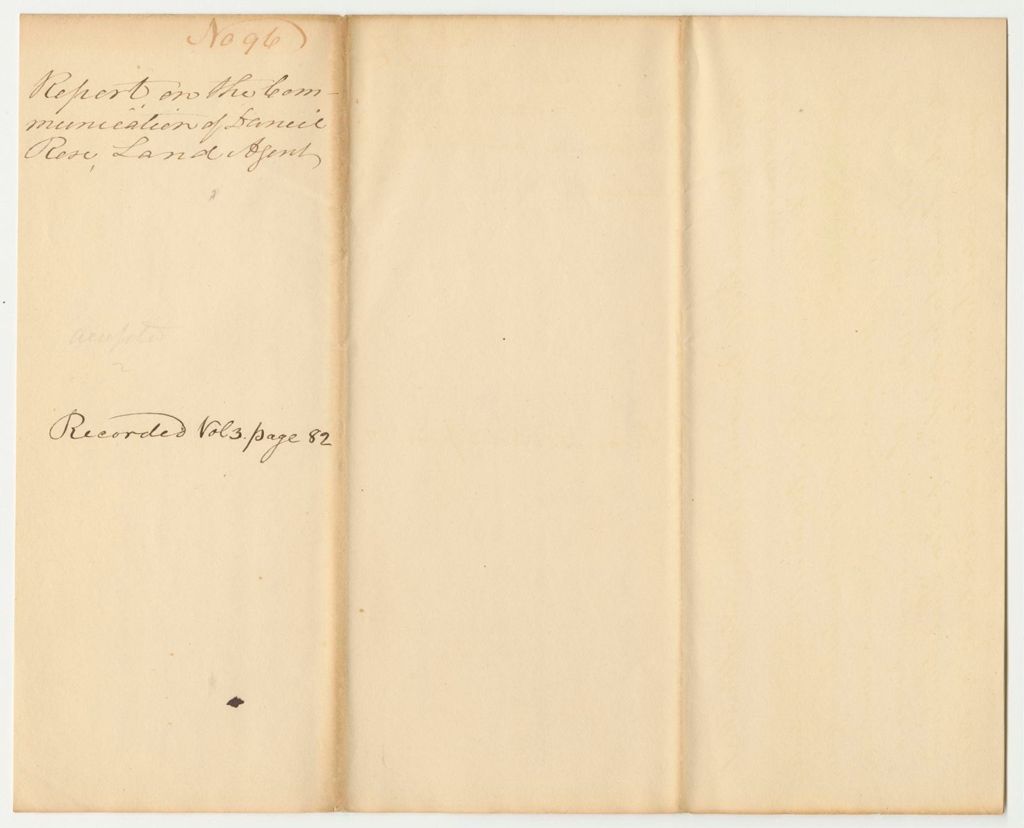 No 96)
Report on the Com-
munication of Daniel
Rose, Land Agent
accepted
Recorded Vol 3. page 82